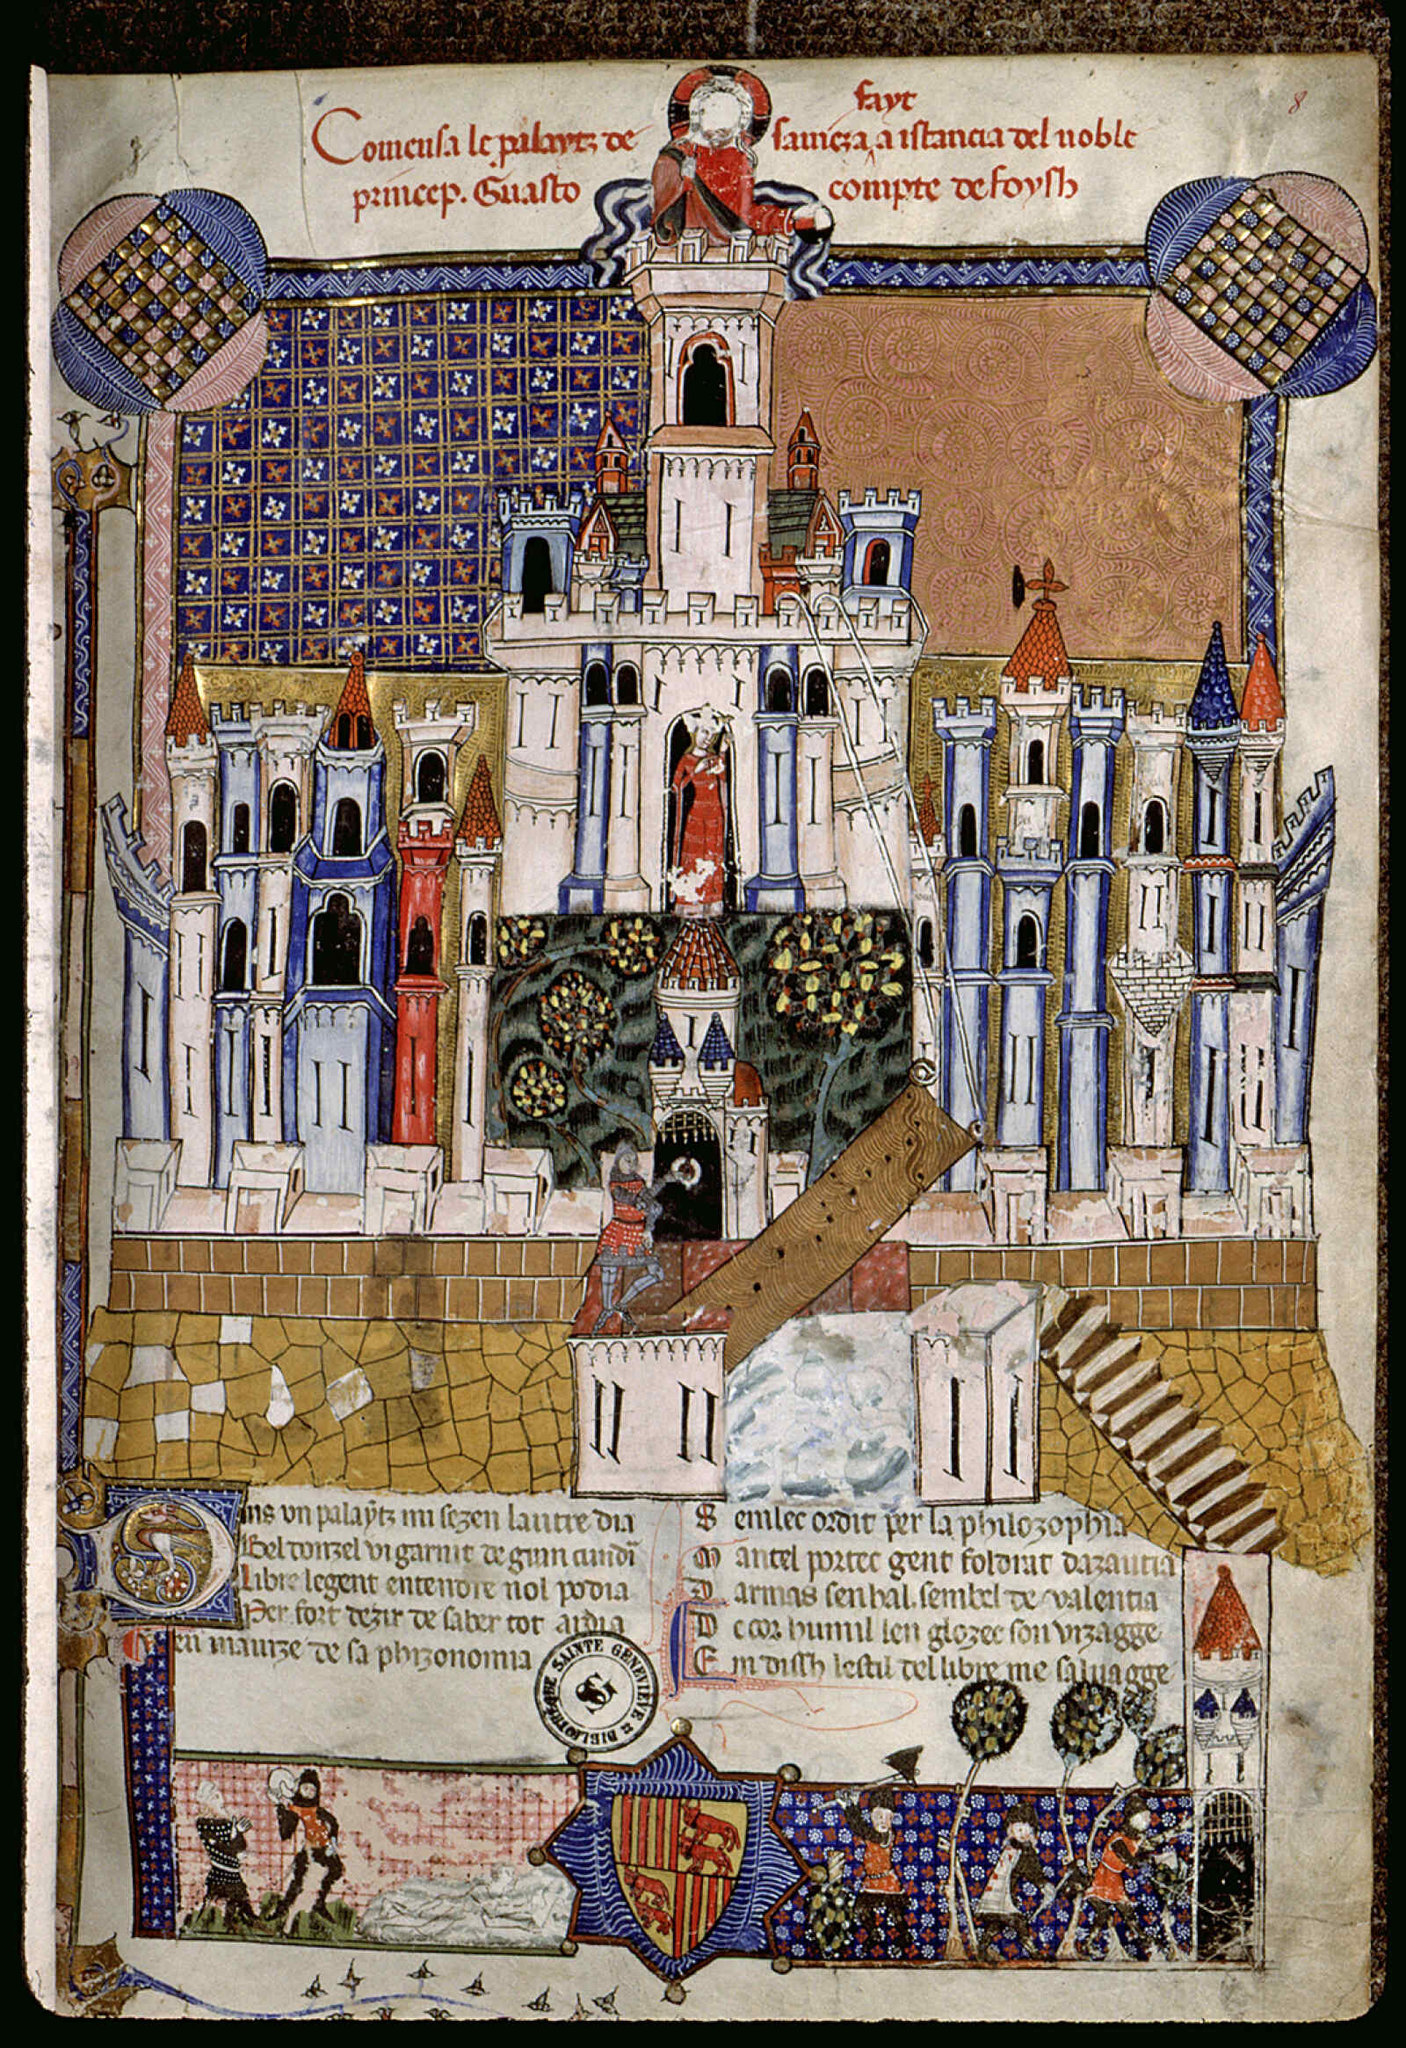 8
Comensa le palaytz de savieza fayt a istancia del noble
princep. Guasto compte de foysh
Dins vn palaytz mi sezen lautre dia
Bel donzel vi garnit de gran
Libre legent entendre nol podia
Per fort dezir de saber tot ardia
en manize de sa phizonomia
Semlec ordit per la philozophia
Mantel portec gent foldrat dazauria
Darmas senhal sembel de valentia
De cor humil len glozec son vizagge
Em dissh lestil del libre me salvagge
BIBLIOTHEQUE SAINTE GENEVIEVE
SG